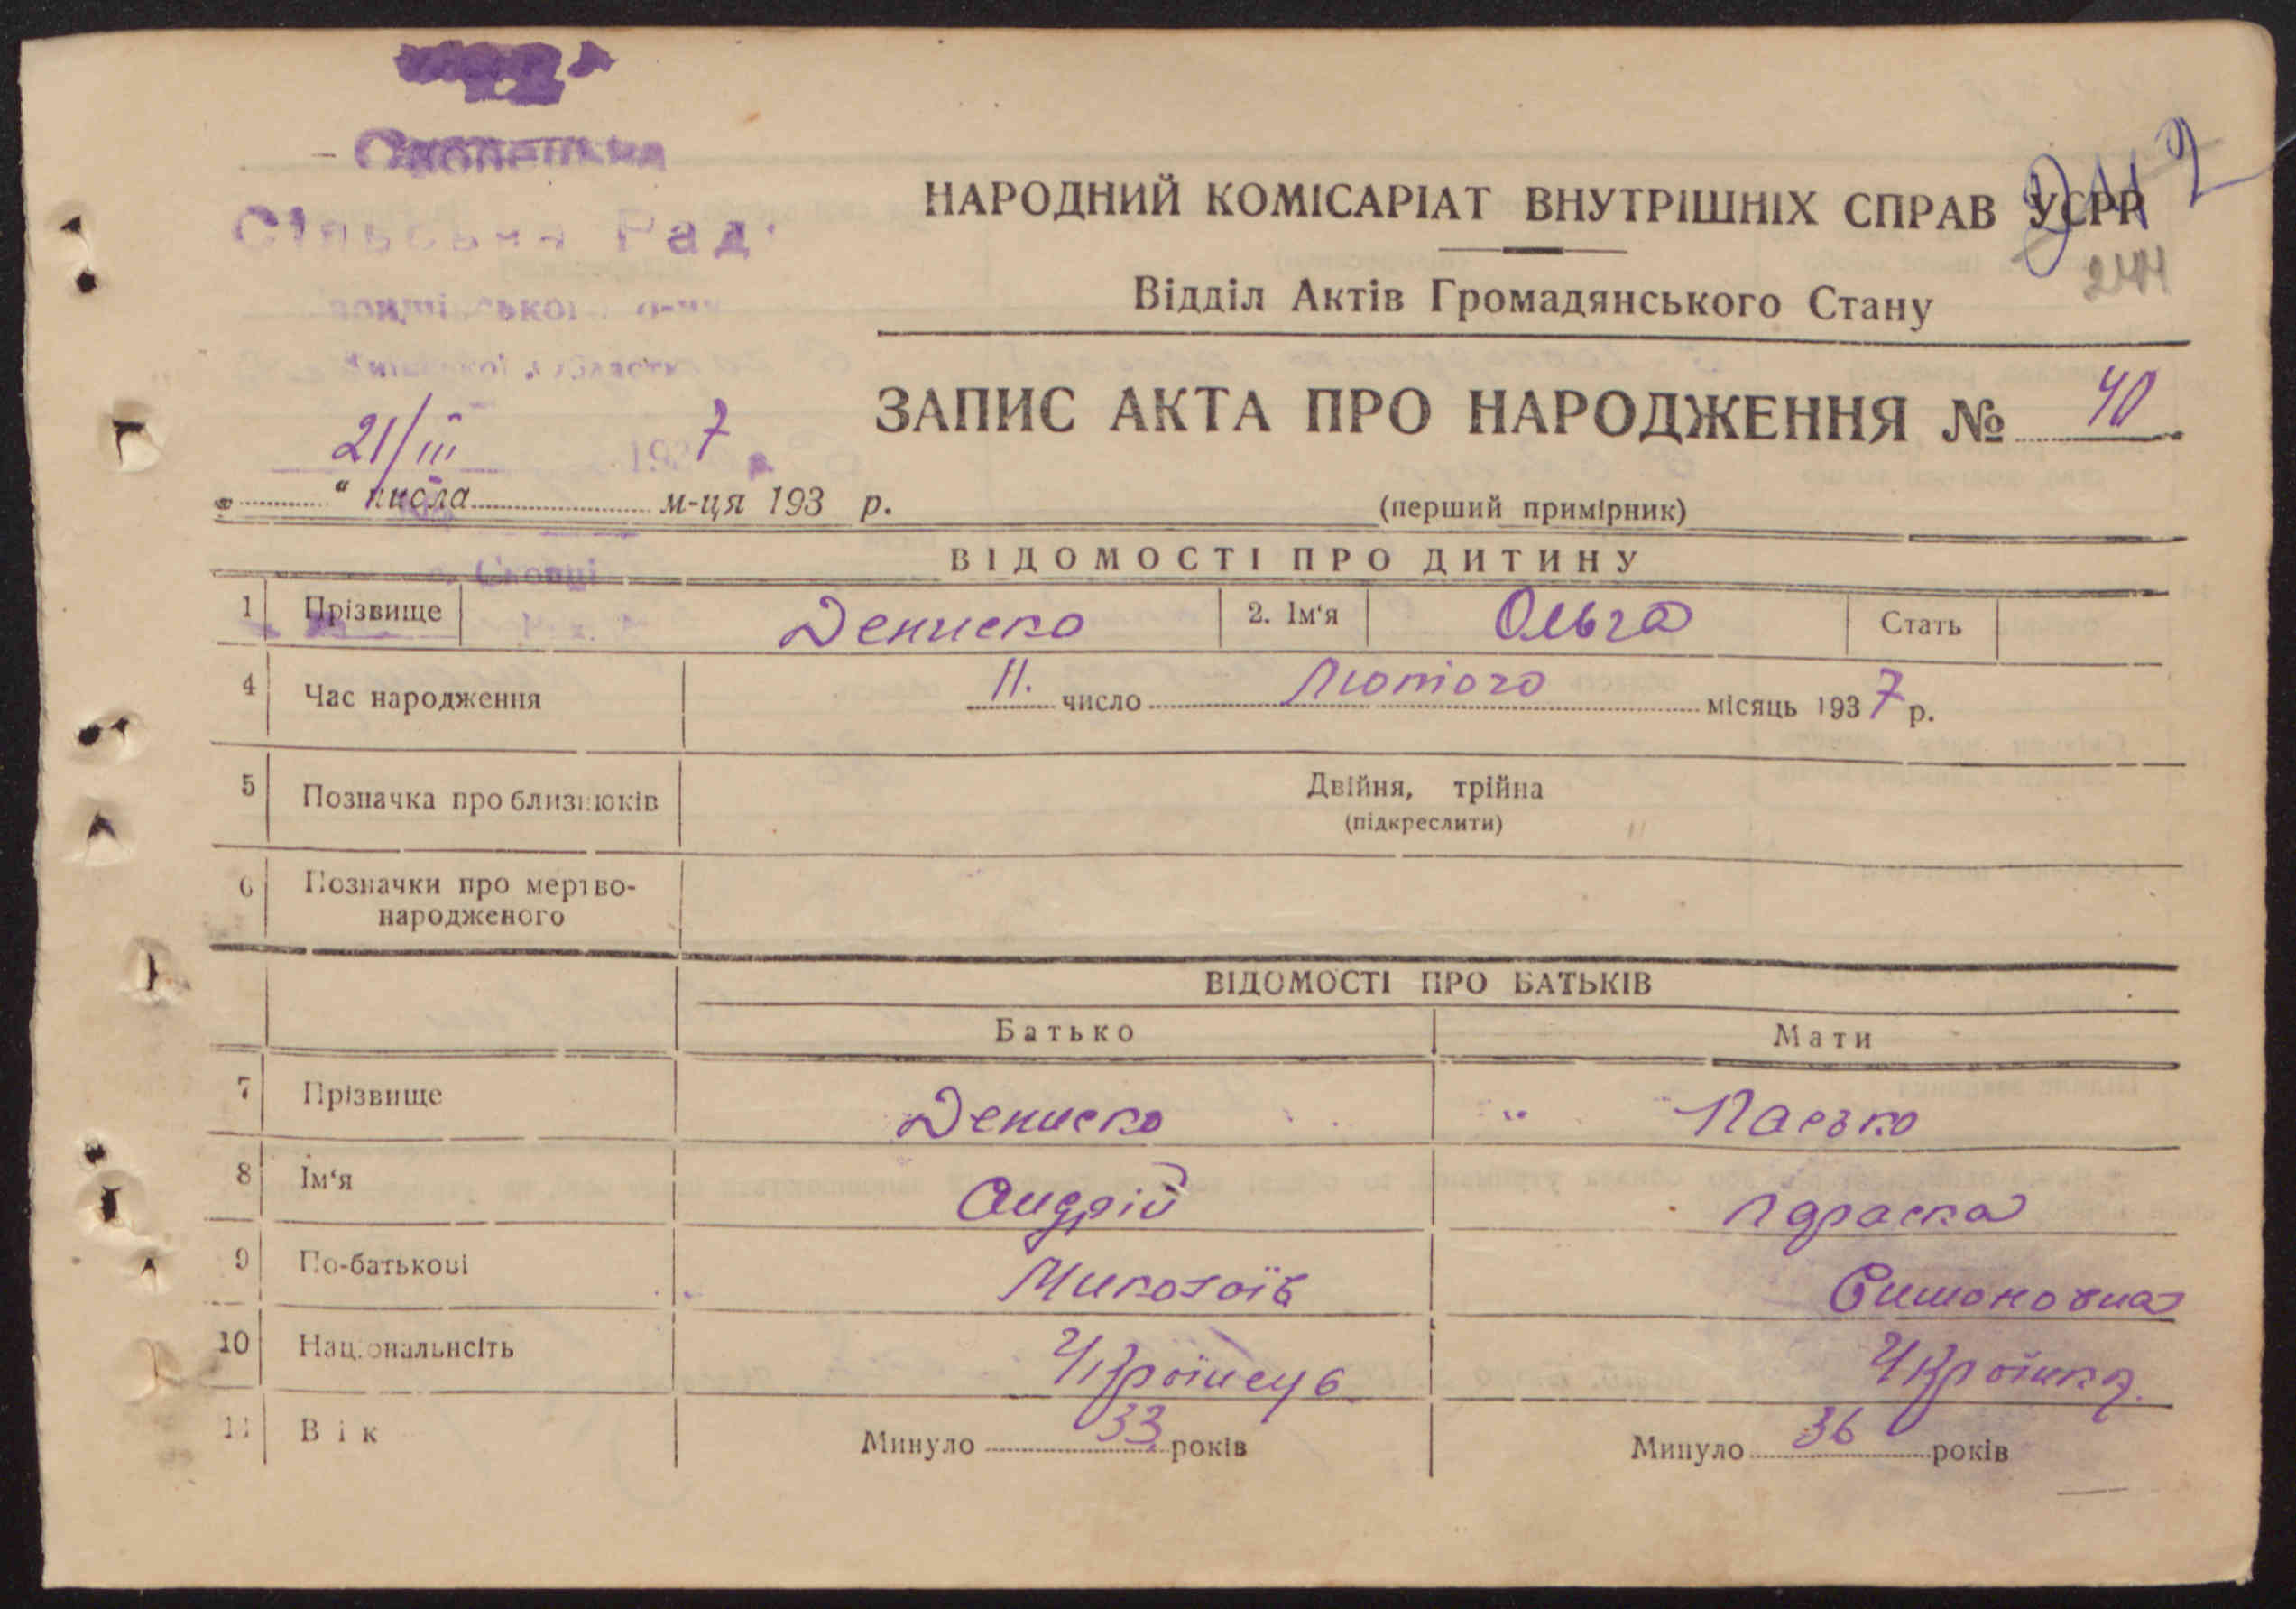 Сільська Рад
НАРОДНИЙ КОМІСАРІАТ ВНУТРІШНІХ СПРАВ УСРР
244
Відділ Актів Громадянського Стану
ЗАПИС АКТА ПРО НАРОДЖЕННЯ № 40
21/III 1937 р.
„ “ числа м-ця 193 р.
(перший примірник)
ВІДОМОСТІ ПРО ДИТИНУ
с. Скопці
1 Прізвище Дениско 2. Ім‘я Ольга Стать
4 Час народження 11. число Лютого місяць 1937 р.
5 Позначка про близнюків Двійня, трійна
(підкреслити)
6 Позначки про мертво-
народженого
ВІДОМОСТІ ПРО БАТЬКІВ
Батько Мати
7 Прізвище Дениско Пасько
8 Ім‘я Андрій
9 По-батькові Миколаїв Симоновна
10 Національнсіть Українець Українка
11 Вік Минуло 33 років Минуло 36 років